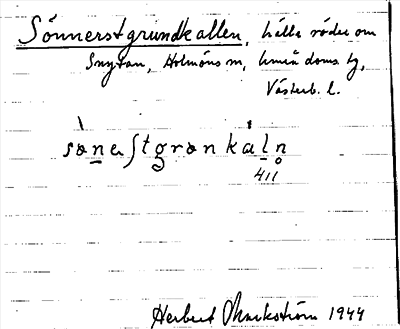 Sönnerstgrundkallen, hälla söder om
Snytan, Holmöns sn, Umeå doms tg,
Västerb. l.
sønaʃtgrønkáln
411
Herbert Markström 1944